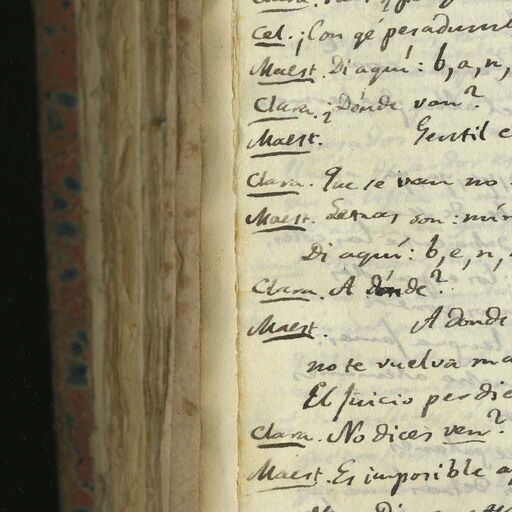 Cel. ¡Con qé pesadumb
Maest. Di aquí: b, a, n,
Clara. ¿Dónde van?
Maest. Gentil
Clara. Que se van no
Maest. Letras son: mír
Di aquí: b, e, n,
Clara. A dónde?
Maest. A donde
no te vuelva ma
El Juicio perdie
Clara. No dices ven?
Maest. Es imposible a